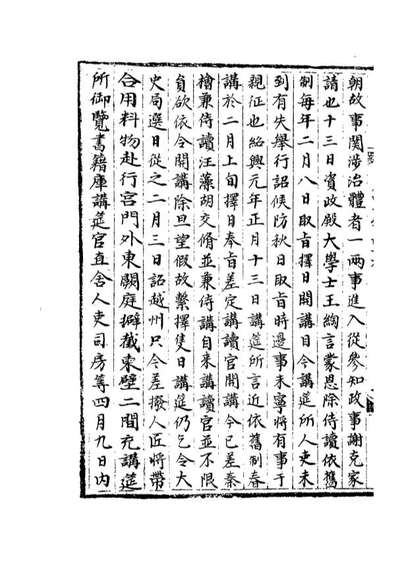 朝故事関涉治體者一兩事進入從參知政事謝克家
請也十三日資政殿大學士王綯言蒙恩除侍讀依舊
制每年二月八日取㫖擇日開講目今講筵所人吏未
到有失舉行詔候防秋日取㫖時邊事未寧將有事于
親征也紹興元年正月十三日講筵所言近依舊制春
講於二月上旬擇日奉㫖差定講讀官開講今已差秦
檜兼侍讀汪藻胡交脩並兼侍講自来講讀官並不限
員欲依令開講除旦望假故繫擇隻日講筵仍乞令大
史局選日從之二月三日詔越州只令差撥人匠將帶
合用料物赴行宫門外東闕庭擗截東壁二間充講筵
所御覽書籍庫講筵官直舍人吏司房等四月九日内